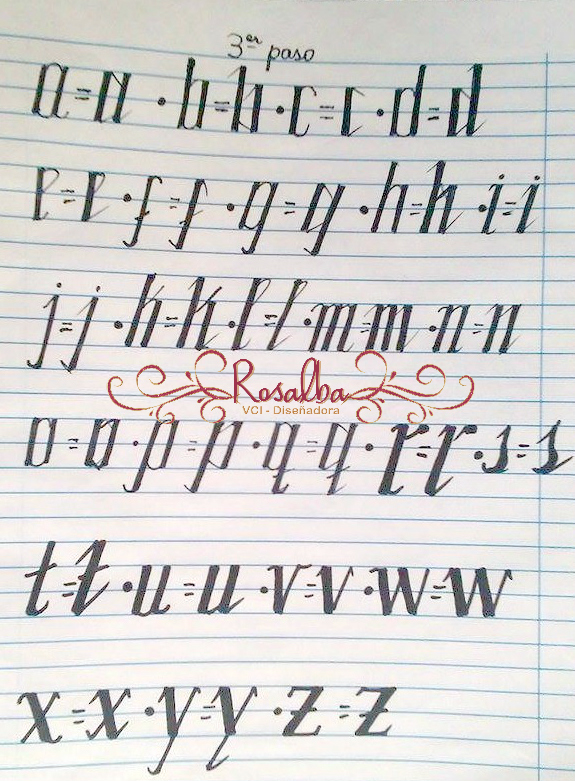 3er paso
a=a • b=b • c=c • d=d
e=e • f=f • g=g • h=h • i=i
j=j • k=k • l=l • m=m • n=n
Rosalba
VCI - Diseñadora
o=o • p=p • q=q • r=r • s=s
t=t • u=u • v=v • w=w
x=x • y=y • z=z